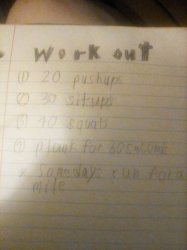 Work out
(1) 20 pushups
(2) 30 situps
(3) 40 squats
(4) plank for 60 seconds
* some days run for a
mile